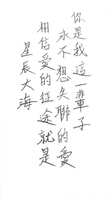 你是我這一輩子
永不想失聯的愛
相信愛的征途就是
星辰大海